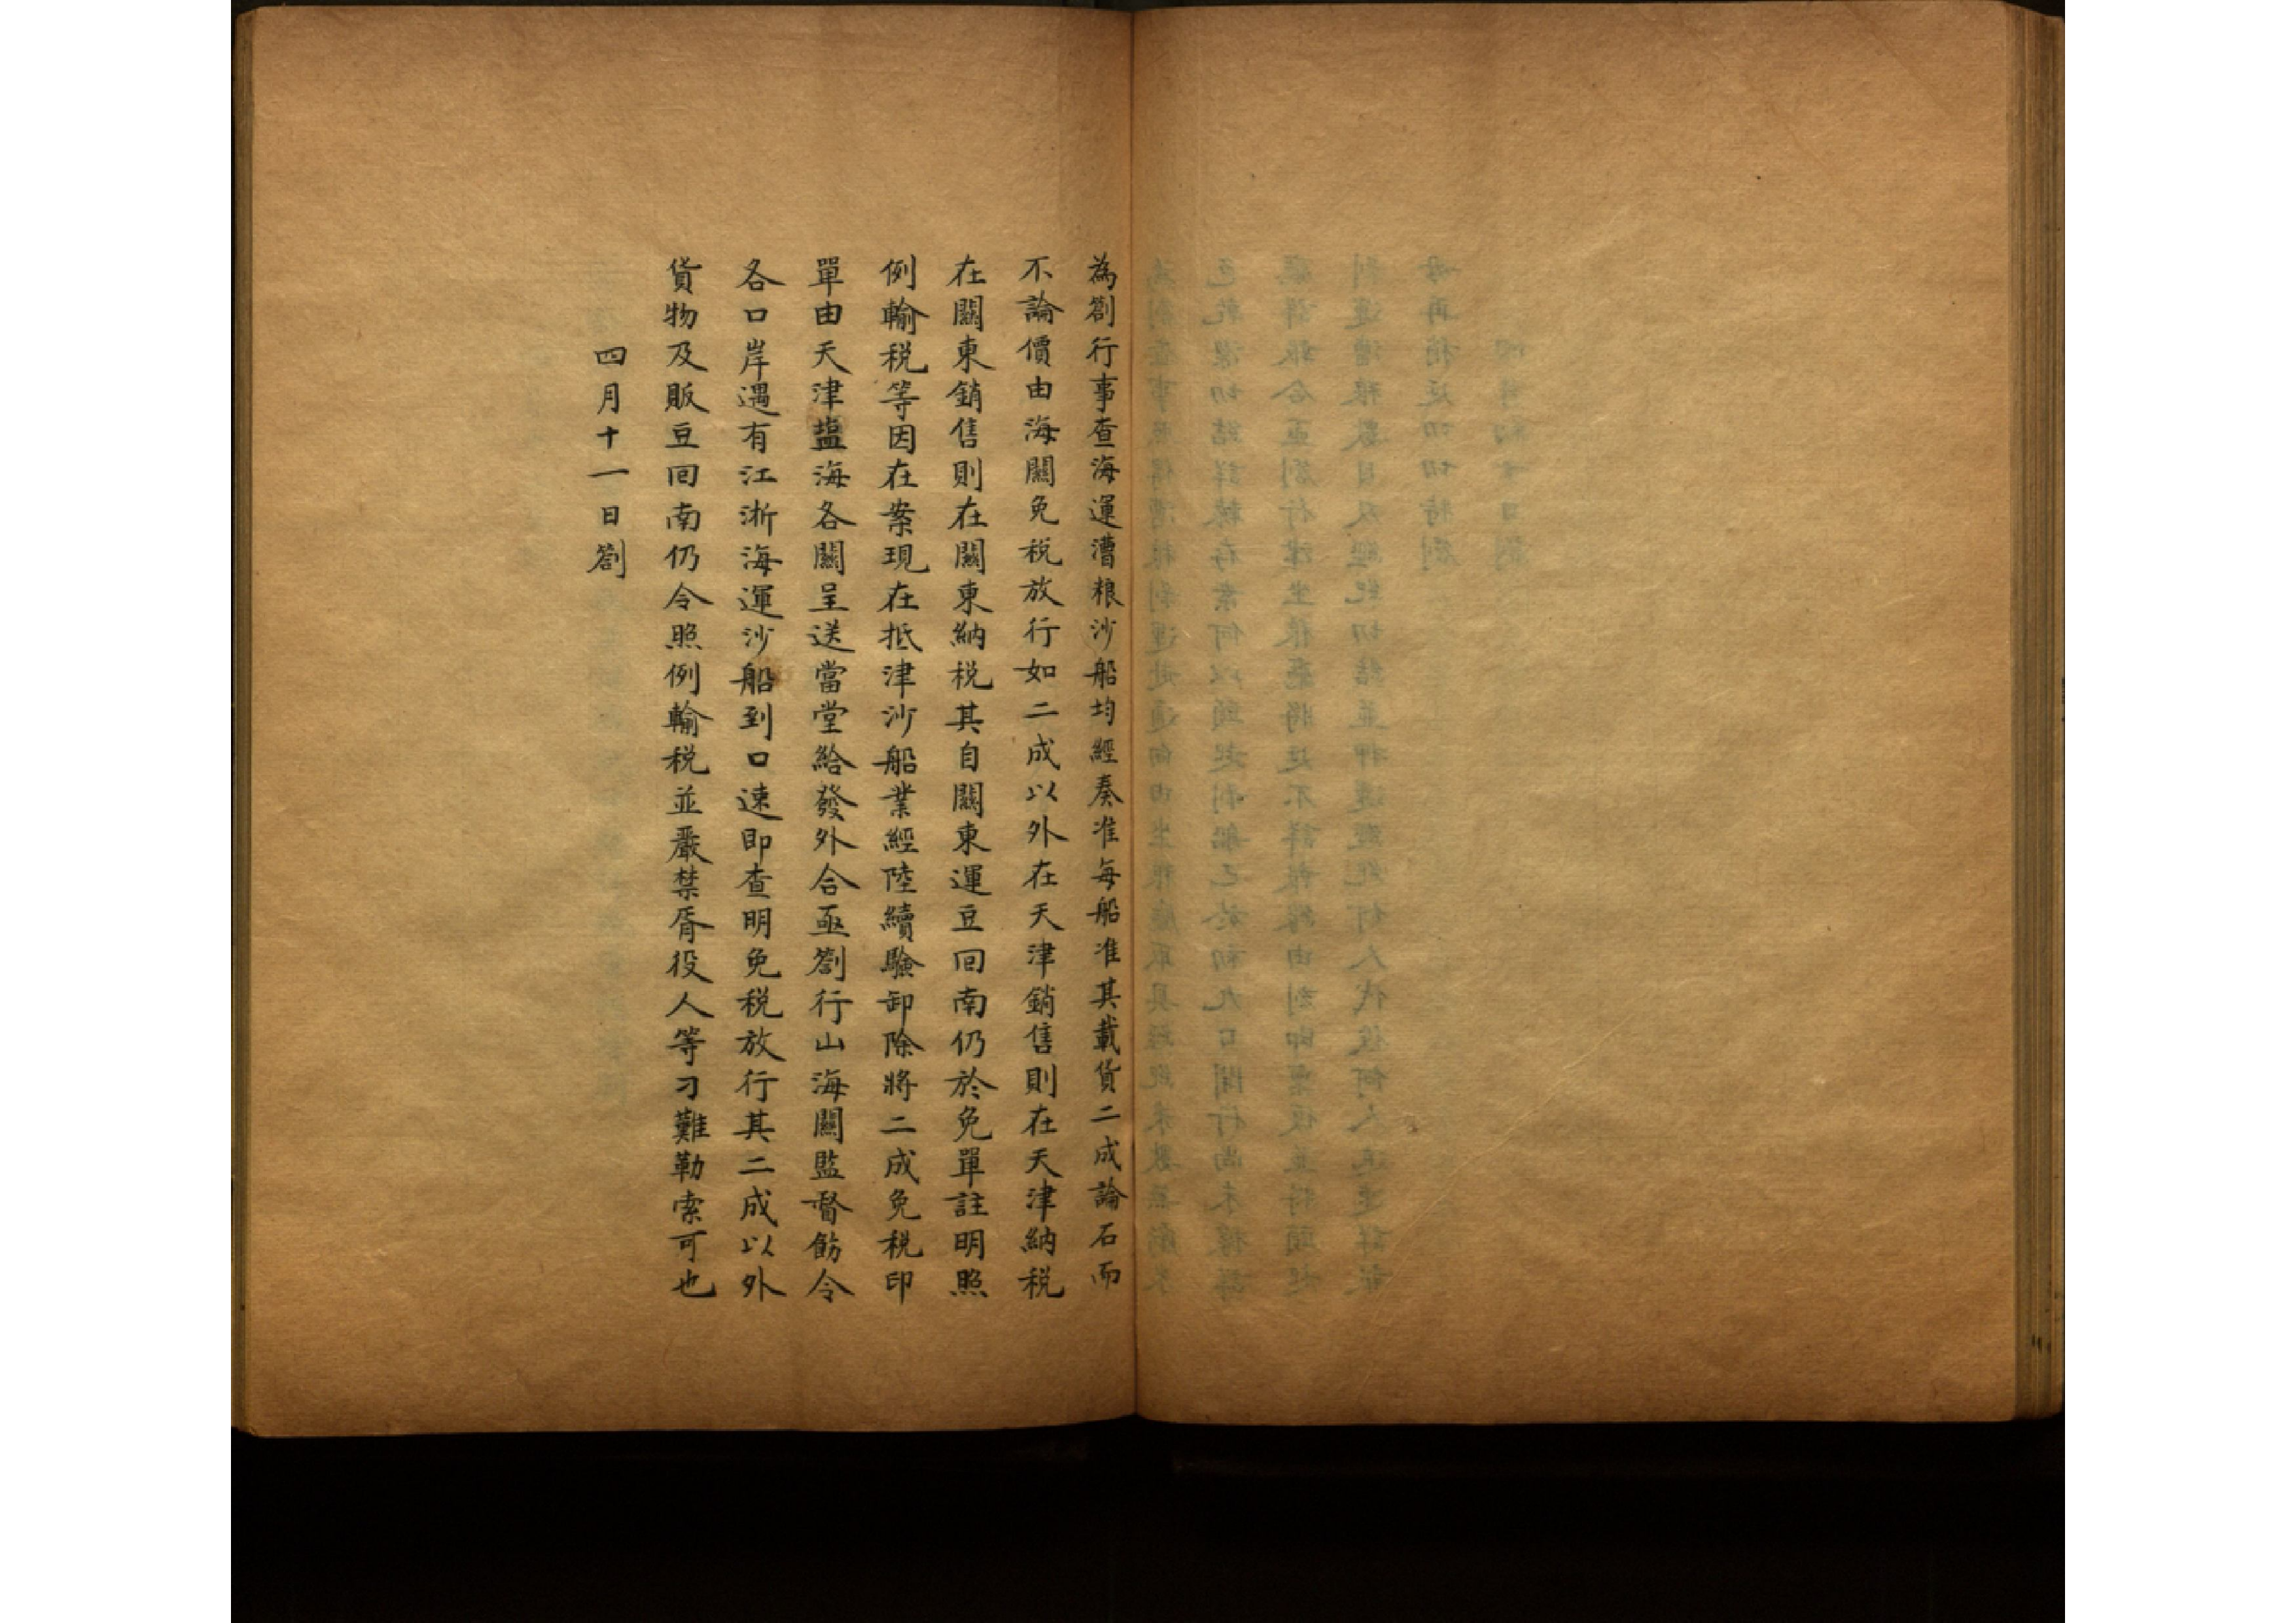 為劄行事查海運漕粮沙船均經奏准每船准其載貨二成論石而
不論價由海關免税放行如二成以外在天津銷售則在天津納税
在關東銷售則在關東納税其自關東運豆回南仍於免單註明照
例輸税等因在案現在抵津沙船業經陸續驗卸除將二成免税印
單由天津塩海各關呈送當堂給發外合亟劄行山海關監督飭令
各口岸遇有江浙海運沙船到口速即查明免税放行其二成以外
貨物及販豆回南仍令照例輸税並嚴禁胥役人等刁難勒索可也
四月十一日劄